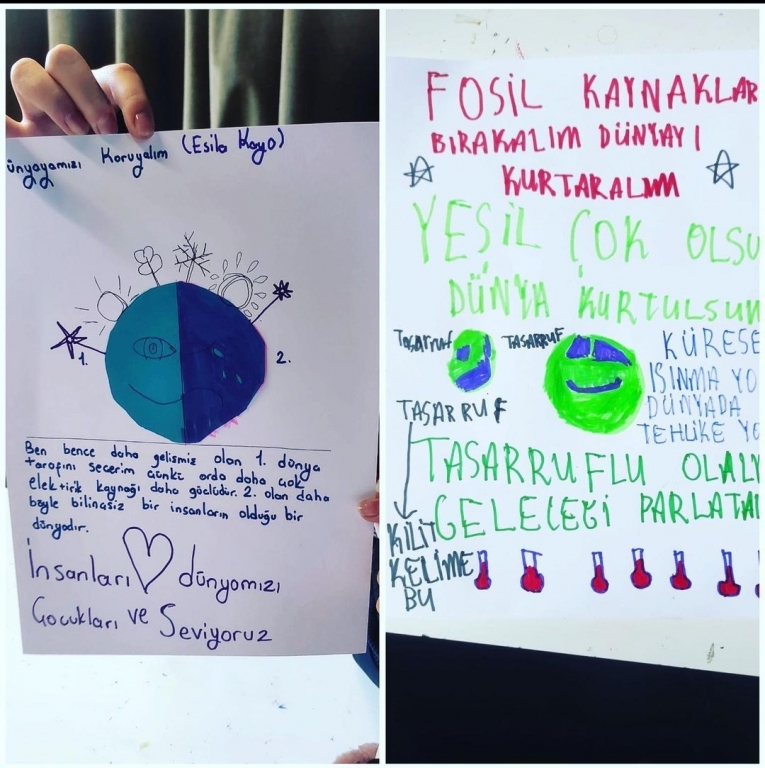 ünyayamızı Koruyalım (Esila Kaya)
1.
2.
Ben bence daha gelişmiş olan 1. dünya
tarafını seçerim çünkü orda daha çok
elektirik kaynağı daha güçlüdür. 2. olan daha
böyle bilinçsiz bir insanların olduğu bir
dünyadır.
İnsanları dünyamızı
Çocukları ve Seviyoruz
FOSİL KAYNAKLAR
BIRAKALIM DÜNYAYI
KURTARALIM
YEŞİL ÇOK OLSU
DÜNYA KURTULSUN
TASARRUF TASARRUF
KÜRESE
ISINMA YO
DÜNYADA
TEHLİKE YO
TASARRUF
TASARRUFLU OLALI
GELECEĞİ PARLATAL
KİLİT
KELİME
BU